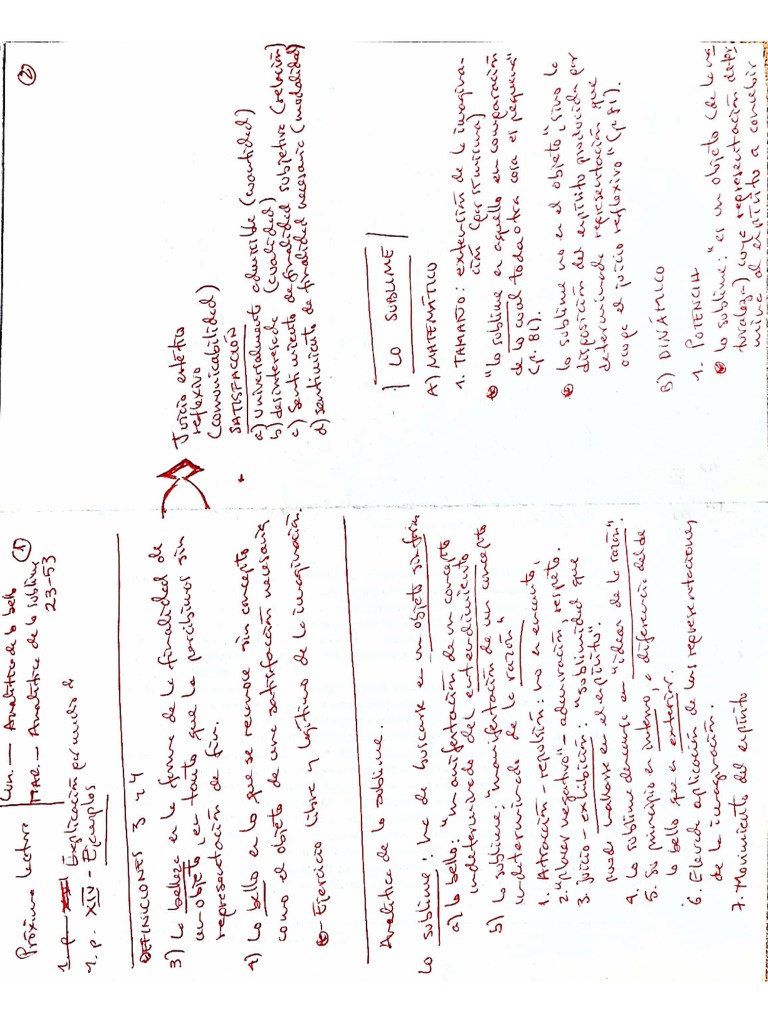 Próxima lectura
Lun. — Analítica de lo bello
Mar. — Analítica de lo sublime
23-53
①
1. p. XII Explicación por medio de
4. p. XIV - Ejemplos
DEFINICIONES 3 y 4
3) La belleza es la forma de la finalidad de
un objeto, en tanto que la percibimos sin
representación de fin.
4) Lo bello es lo que se reconoce sin concepto
como el objeto de una satisfacción necesaria
- Ejercicio libre y legítimo de la imaginación.
Analítica de lo sublime.
Lo sublime: ha de buscarse en un objeto sin forma
a) lo bello: "manifestación de un concepto
indeterminado del entendimiento
b) Lo sublime; "manifestación de un concepto
indeterminado de la razón"
1. Atracción - repulsión: no es encanto,
2. "placer negativo" - admiración, respeto.
3. juicio - exhibición: "sublimidad que
puede hallarse en el espíritu".
4. Lo sublime descansa en "ideas de la razón".
5. Su principio es interno, a diferencia del de
lo bello que es exterior.
6. Elevada aplicación de las representaciones
de la imaginación.
7. Movimiento del espíritu
②
Juicio estético
reflexivo
(comunicabilidad)
SATISFACCIÓN
a) Universalmente admisible (cuantidad)
b) desinteresada (cualidad)
c) Sentimiento de finalidad subjetiva (relación)
d) sentimiento de finalidad necesaria (modalidad)
LO SUBLIME
A) MATEMÁTICO
1. TAMAÑO: extensión de la imagina-
ción (por sí misma)
"lo sublime es aquello en comparación
de lo cual toda otra cosa es pequeña"
(p. 81).
lo sublime no es el objeto", sino la
disposición del espíritu producida por
determinada representación que
ocupa el juicio reflexivo" (p. 81).
B) DINÁMICO
1. POTENCIA
lo sublime: "es un objeto (de la na
turaleza) cuya representación deter
mina al espíritu a concebir